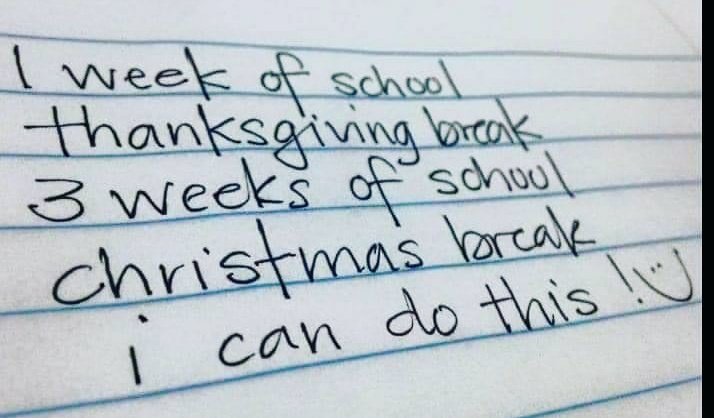 1 week of school
thanksgiving break
3 weeks of school
christmas break
i can do this! :)